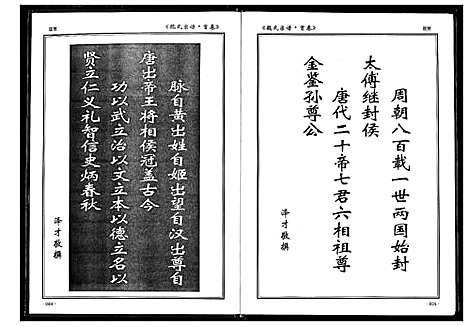 《魏氏宗谱·首卷》
周朝八百载一世两国始封
太傅继封侯
唐代二十帝七君六相祖尊
金鉴孙尊公
泽才敬撰
《魏氏宗谱·首卷》
脉自黄出姓自姬出望自汉出尊自
唐出帝王将相侯冠盖古今
功以武立治以文立本以德立名以
贤立仁义礼智信史炳春秋
泽才敬撰